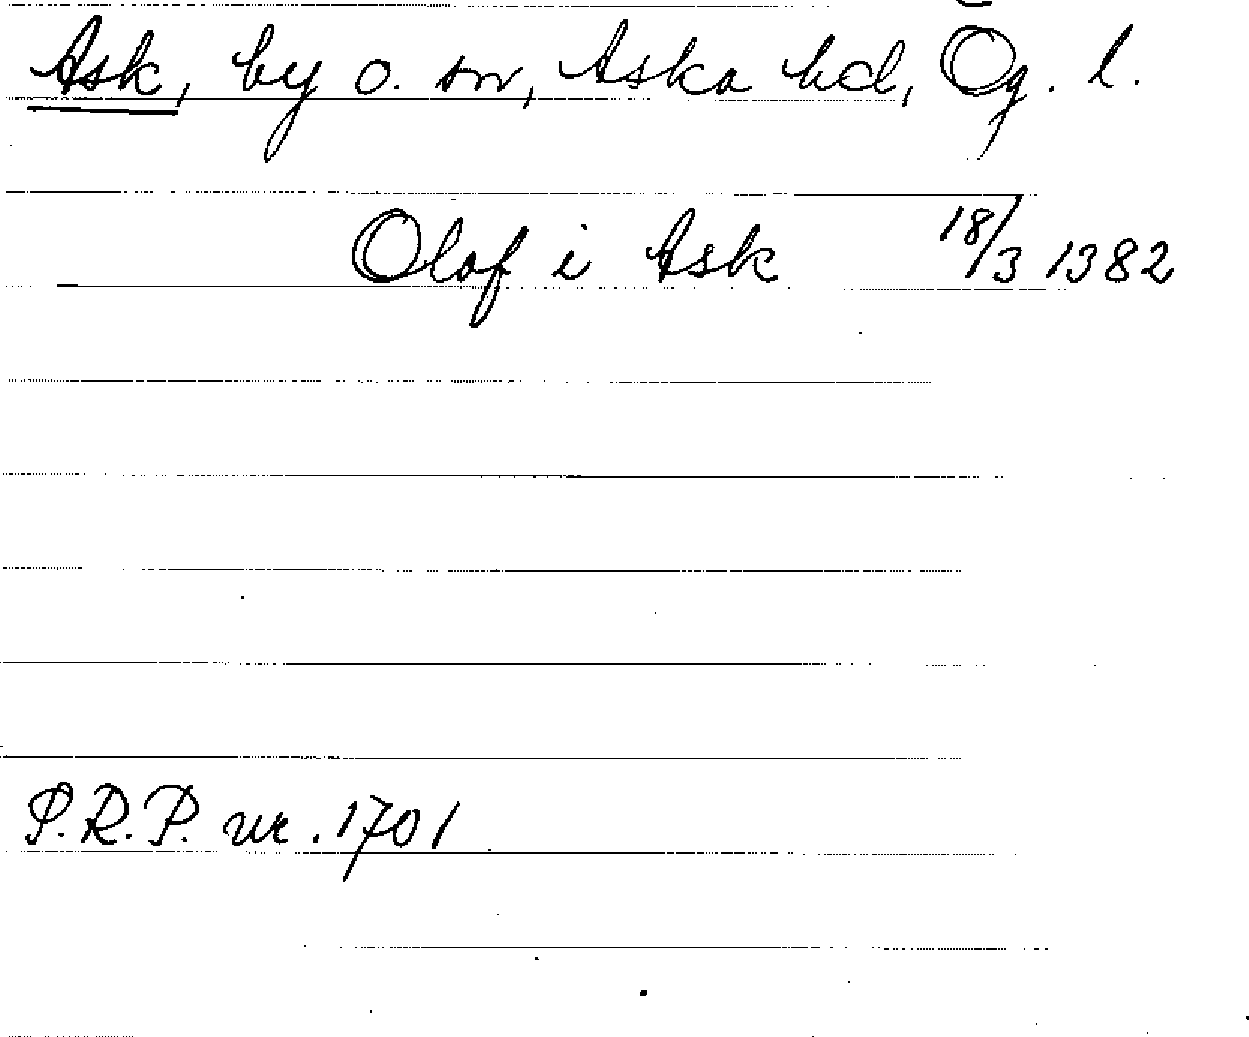 Ask, by o. sn, Aska hd, Ög. l.
Olof i Ask 18/3 1382
P.R.P. nr. 1701